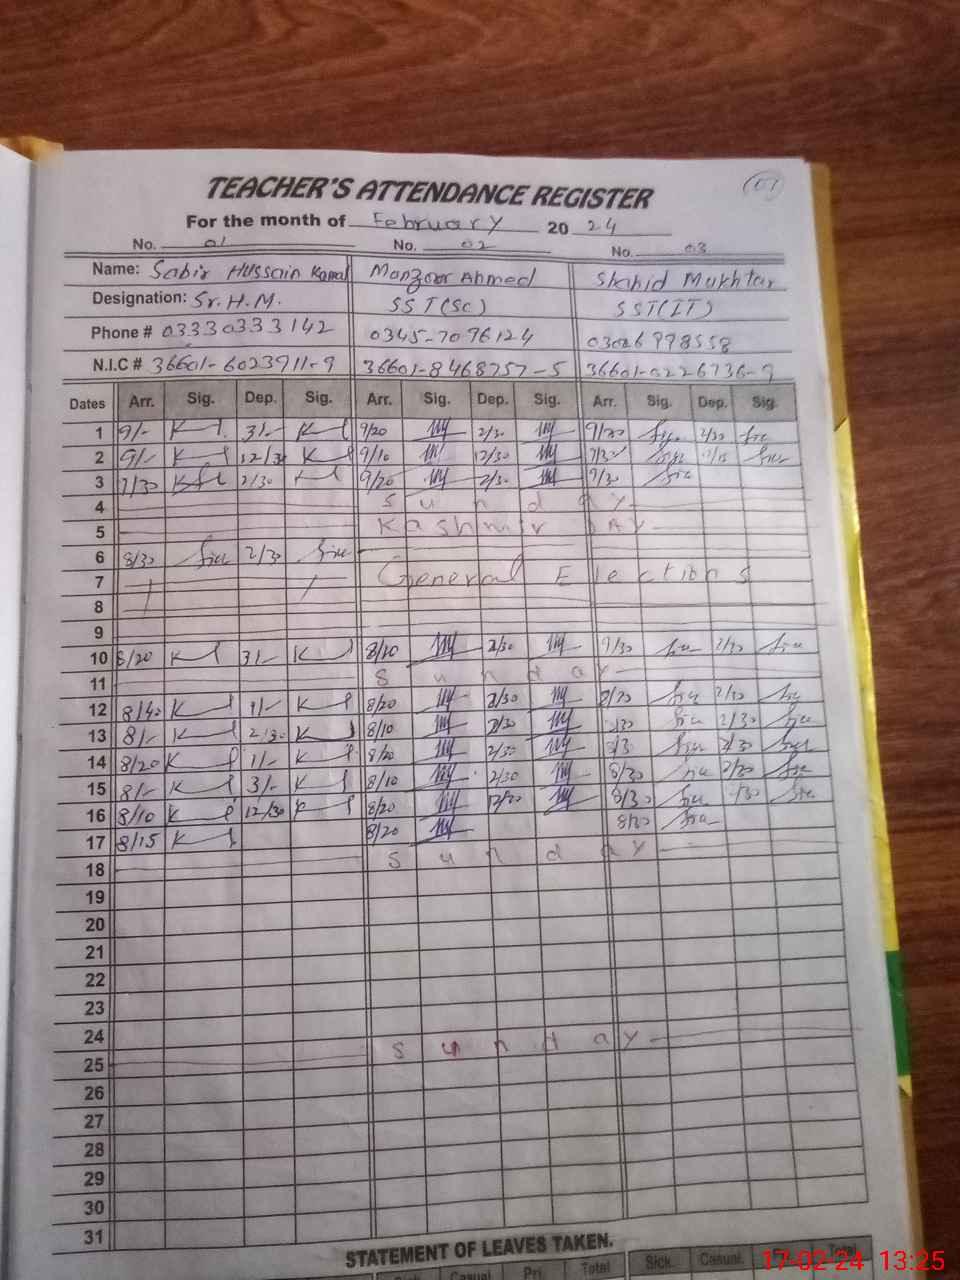 01
TEACHER'S ATTENDANCE REGISTER
For the month of February 20 24
No. 01 No. 02 No. 03
Name: Sabir Hussain Kamal Manzoor Ahmed Shahid Mukhtar
Designation: Sr. H.M. SST(Sc) SST(IT)
Phone # 03330333142 0345-7096124 03026998558
N.I.C # 36601-6023911-9 36601-8468757-5 36601-0226736-9
Dates Arr. Sig. Dep. Sig. Arr. Sig. Dep. Sig. Arr. Sig. Dep. Sig.
1 9/- 3/- 9/20 2/30 9/20 2/30
2 9/- 12/30 9/10 12/30 9/30
3 7/30 2/30 9/20 2/30 9/30
4 Sunday
5 Kashmir DAY
6 8/30 2/30
7 General Elections
8
9
10 8/20 3/- 8/10 2/30 9/30 2/30
11 Sunday
12 8/40 1/- 8/20 2/30 8/30 2/30
13 8/- 2/30 8/10 2/30 8/30 2/30
14 8/20 1/- 8/20 2/30 8/30 2/30
15 8/- 3/- 8/10 2/30 8/30 2/30
16 8/10 12/30 8/20 12/30 8/30
17 8/15 8/20 8/30
18 Sunday
19
20
21
22
23
24
25 Sunday
26
27
28
29
30
31
STATEMENT OF LEAVES TAKEN.
Sick Casual Pri. Total Sick. Casual. Total
17-02-24 13:25